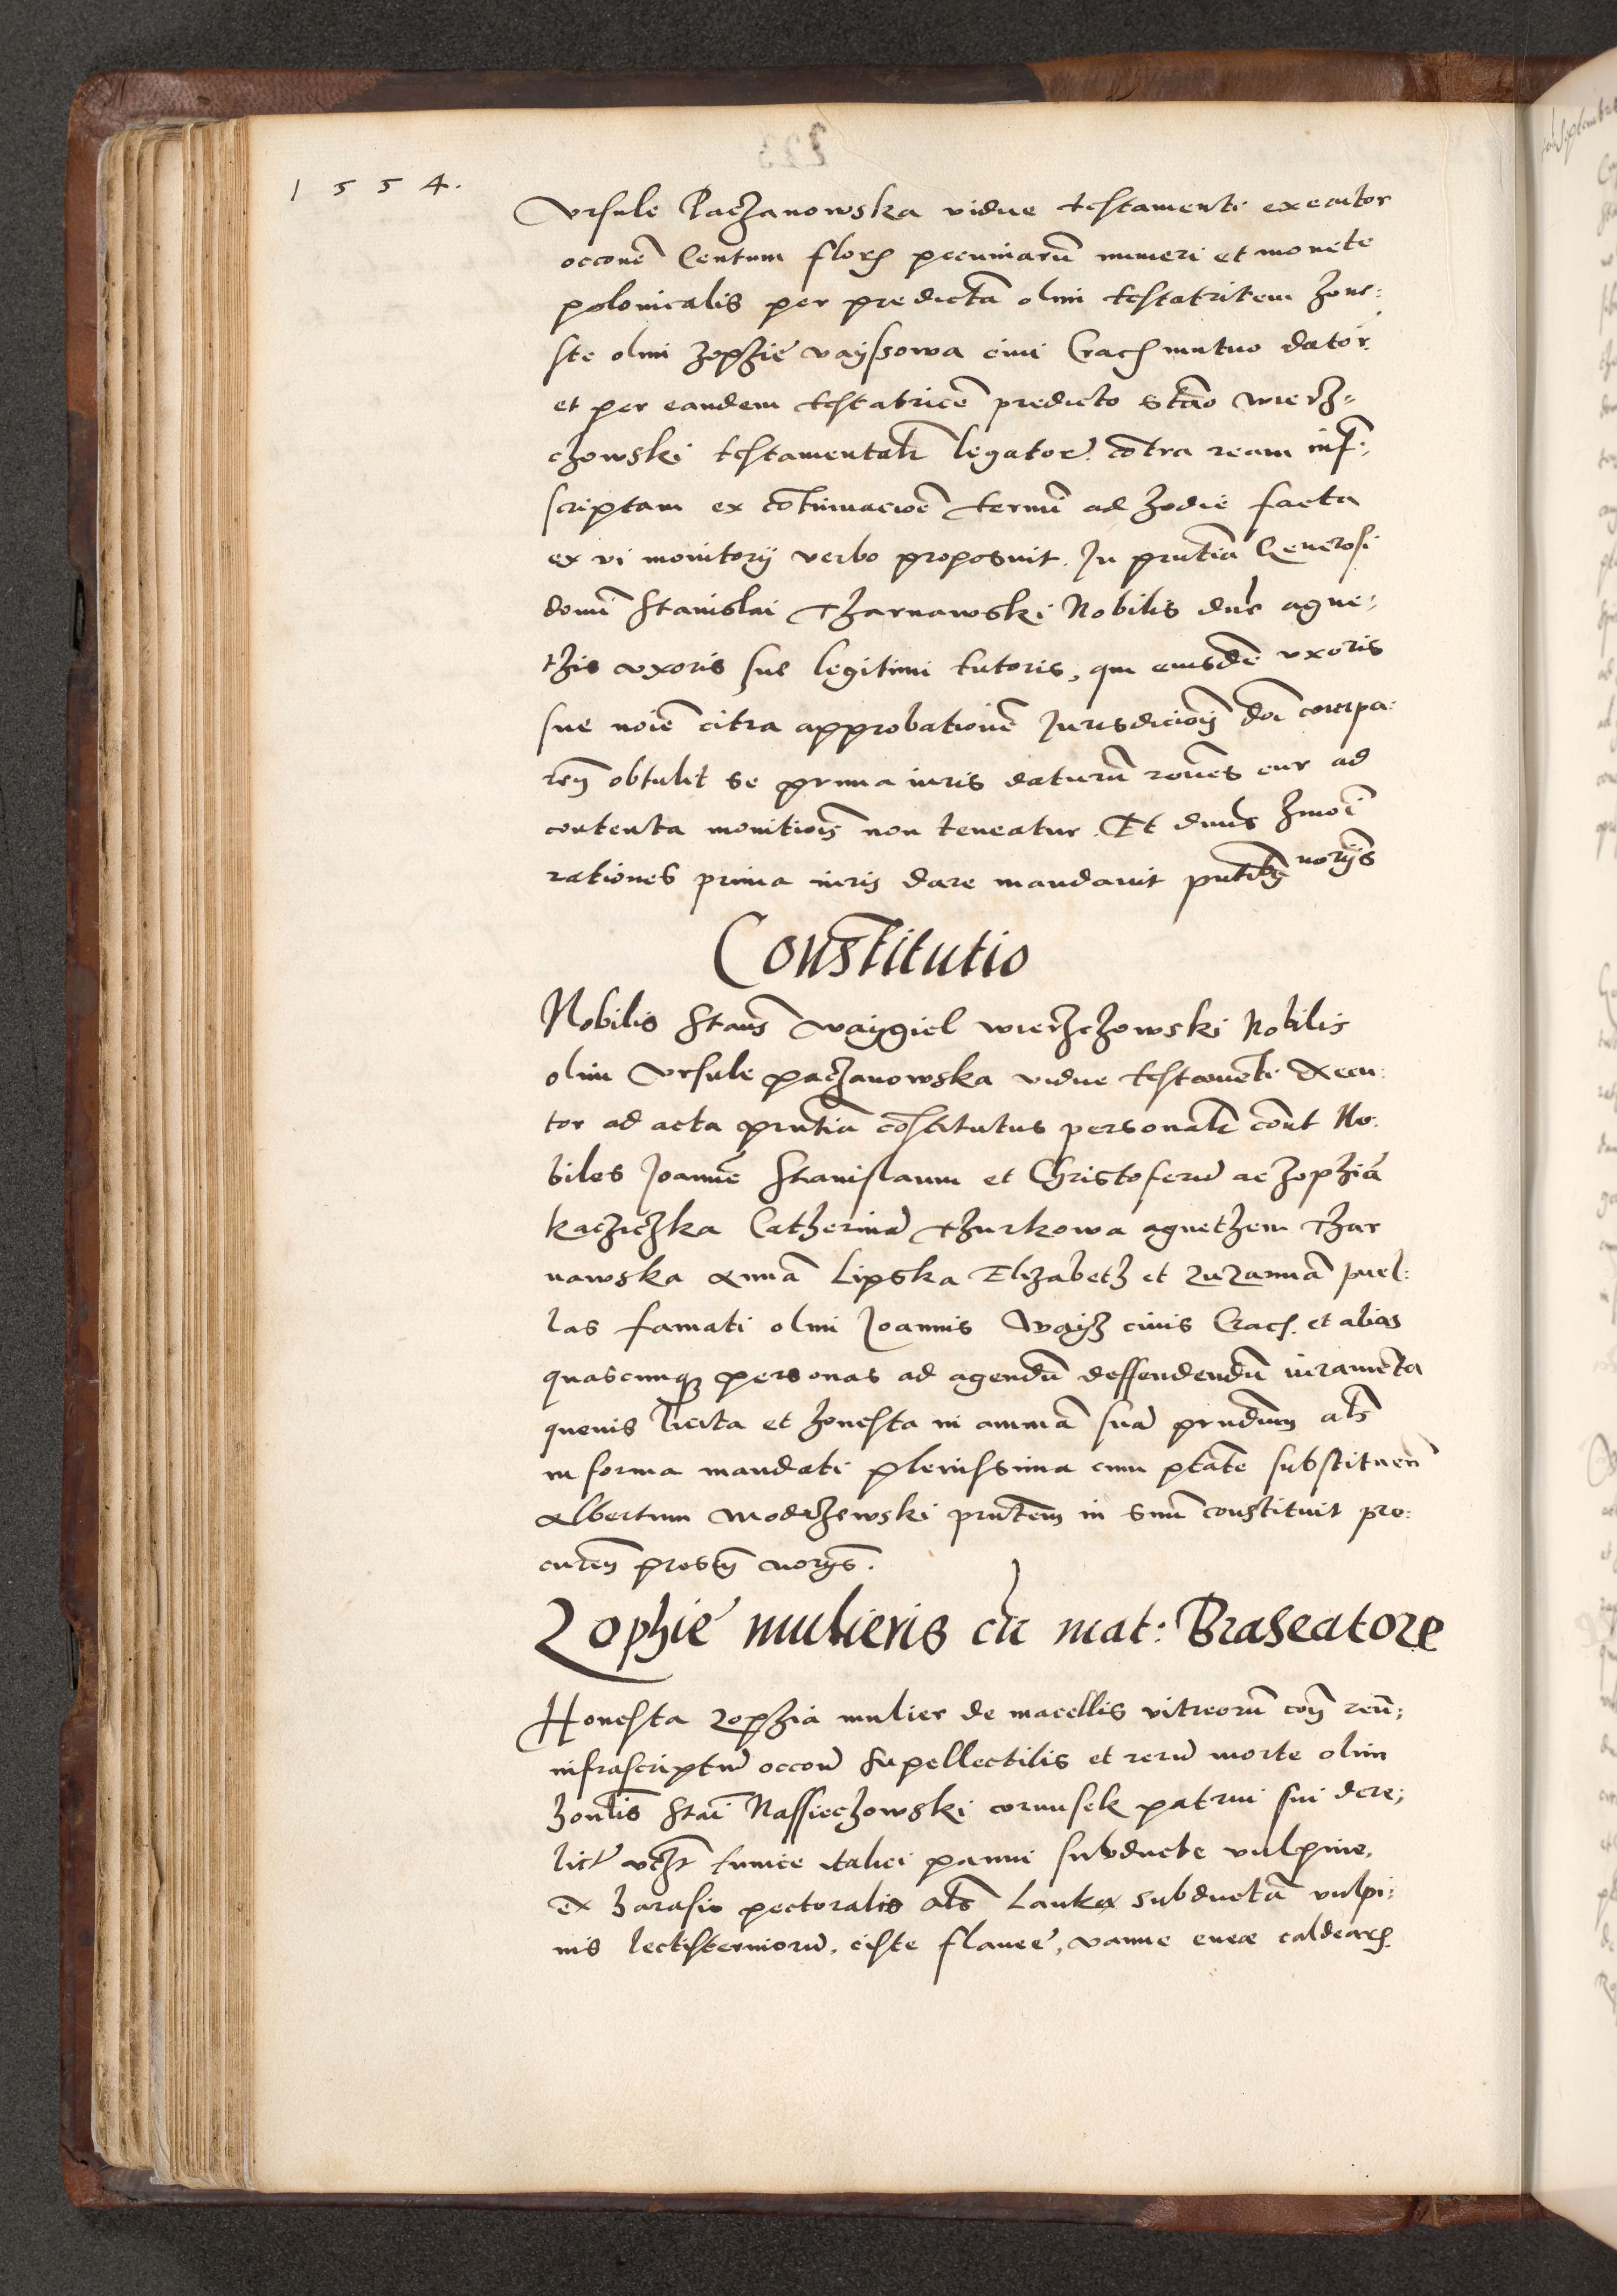 1554.
Vrsule Paczanowska vidue testamenti executor
occone Centum flor pecuniarū numeri et monete
polonicalis per predictā olim testatricem hone:
ste olim Zophie Vayssowa ciui Crac mutuo dator
et per eandem testatricē predicto Stāo Wierz=
czowski testamentalr legator. cōtra ream inf:
scriptam ex cōtinuacioē termī ad hodie facta
ex vi monitorij verbo proposuit. In pntiā Generosi
domī Stanislai Tharnawski Nobilis dne agne:
this vxoris sue legitimi tutoris, qui eiusdē vxoris
sue noīe citra approbationē Jurisdicioīs doī compa:
ren obtulit se prima iuris daturū roēs cur ad
contenta monitiois non teneatur. Et dnus hmoī
rationes prima iuris dare mandauit pntibg noriis
Constitutio
Nobilis Staūs Waygiel Wierzchowski Nobilis
olim Vrsule Paczanowska vidue testamēti Execu:
tor ad acta pntiā cōstitutus personalr cont No:
biles Joannē Stanislaum et Christoferū ac Zophiā
Kacziczka Catherinā Thurkowa agnethem Thar
nawska Annā Lipska Elizabeth et Zuzannā puel:
las famati olim Joannis Waijs ciuis Crac. et alias
quascunq personas ad agendū deffendendū iuramēta
queuis licita et honesta in animā suā prndum als
in forma mandati plenissima cum ptāte substituen
Albertum Modrzewski pntem in Smū constituit pro:
curem prestg noriis.
Zophie mulieris cū mat: Braseatore
Honesta Zophia mulier de macellis vitreorū con reū:
infrascriptū occone supellectilis et rerū morte olim
hontis Stai Nassiechowski cornusek patrui sui dere;
lict vczt tunice italici panni subducte vulpine,
ex harasio pectoralis als Lanka subductā vulpi:
nis lectisterniorū, ciste flauee, vanne enee caldear